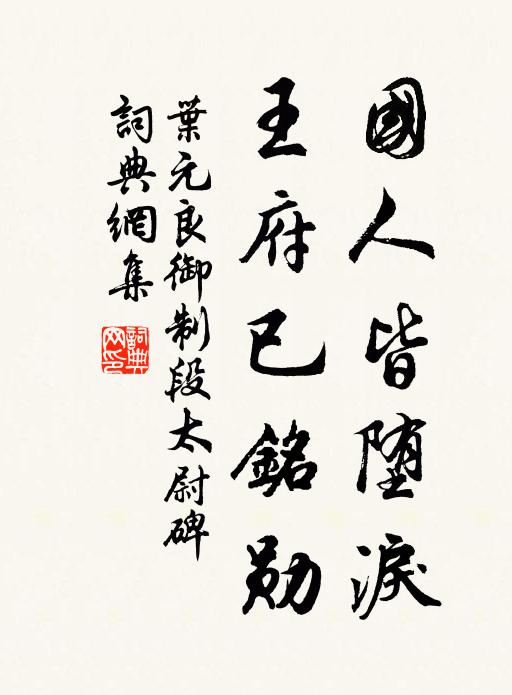 國人皆堕淚
王府已銘勛
葉元良御制段太尉碑
詞典網集
詞典網印